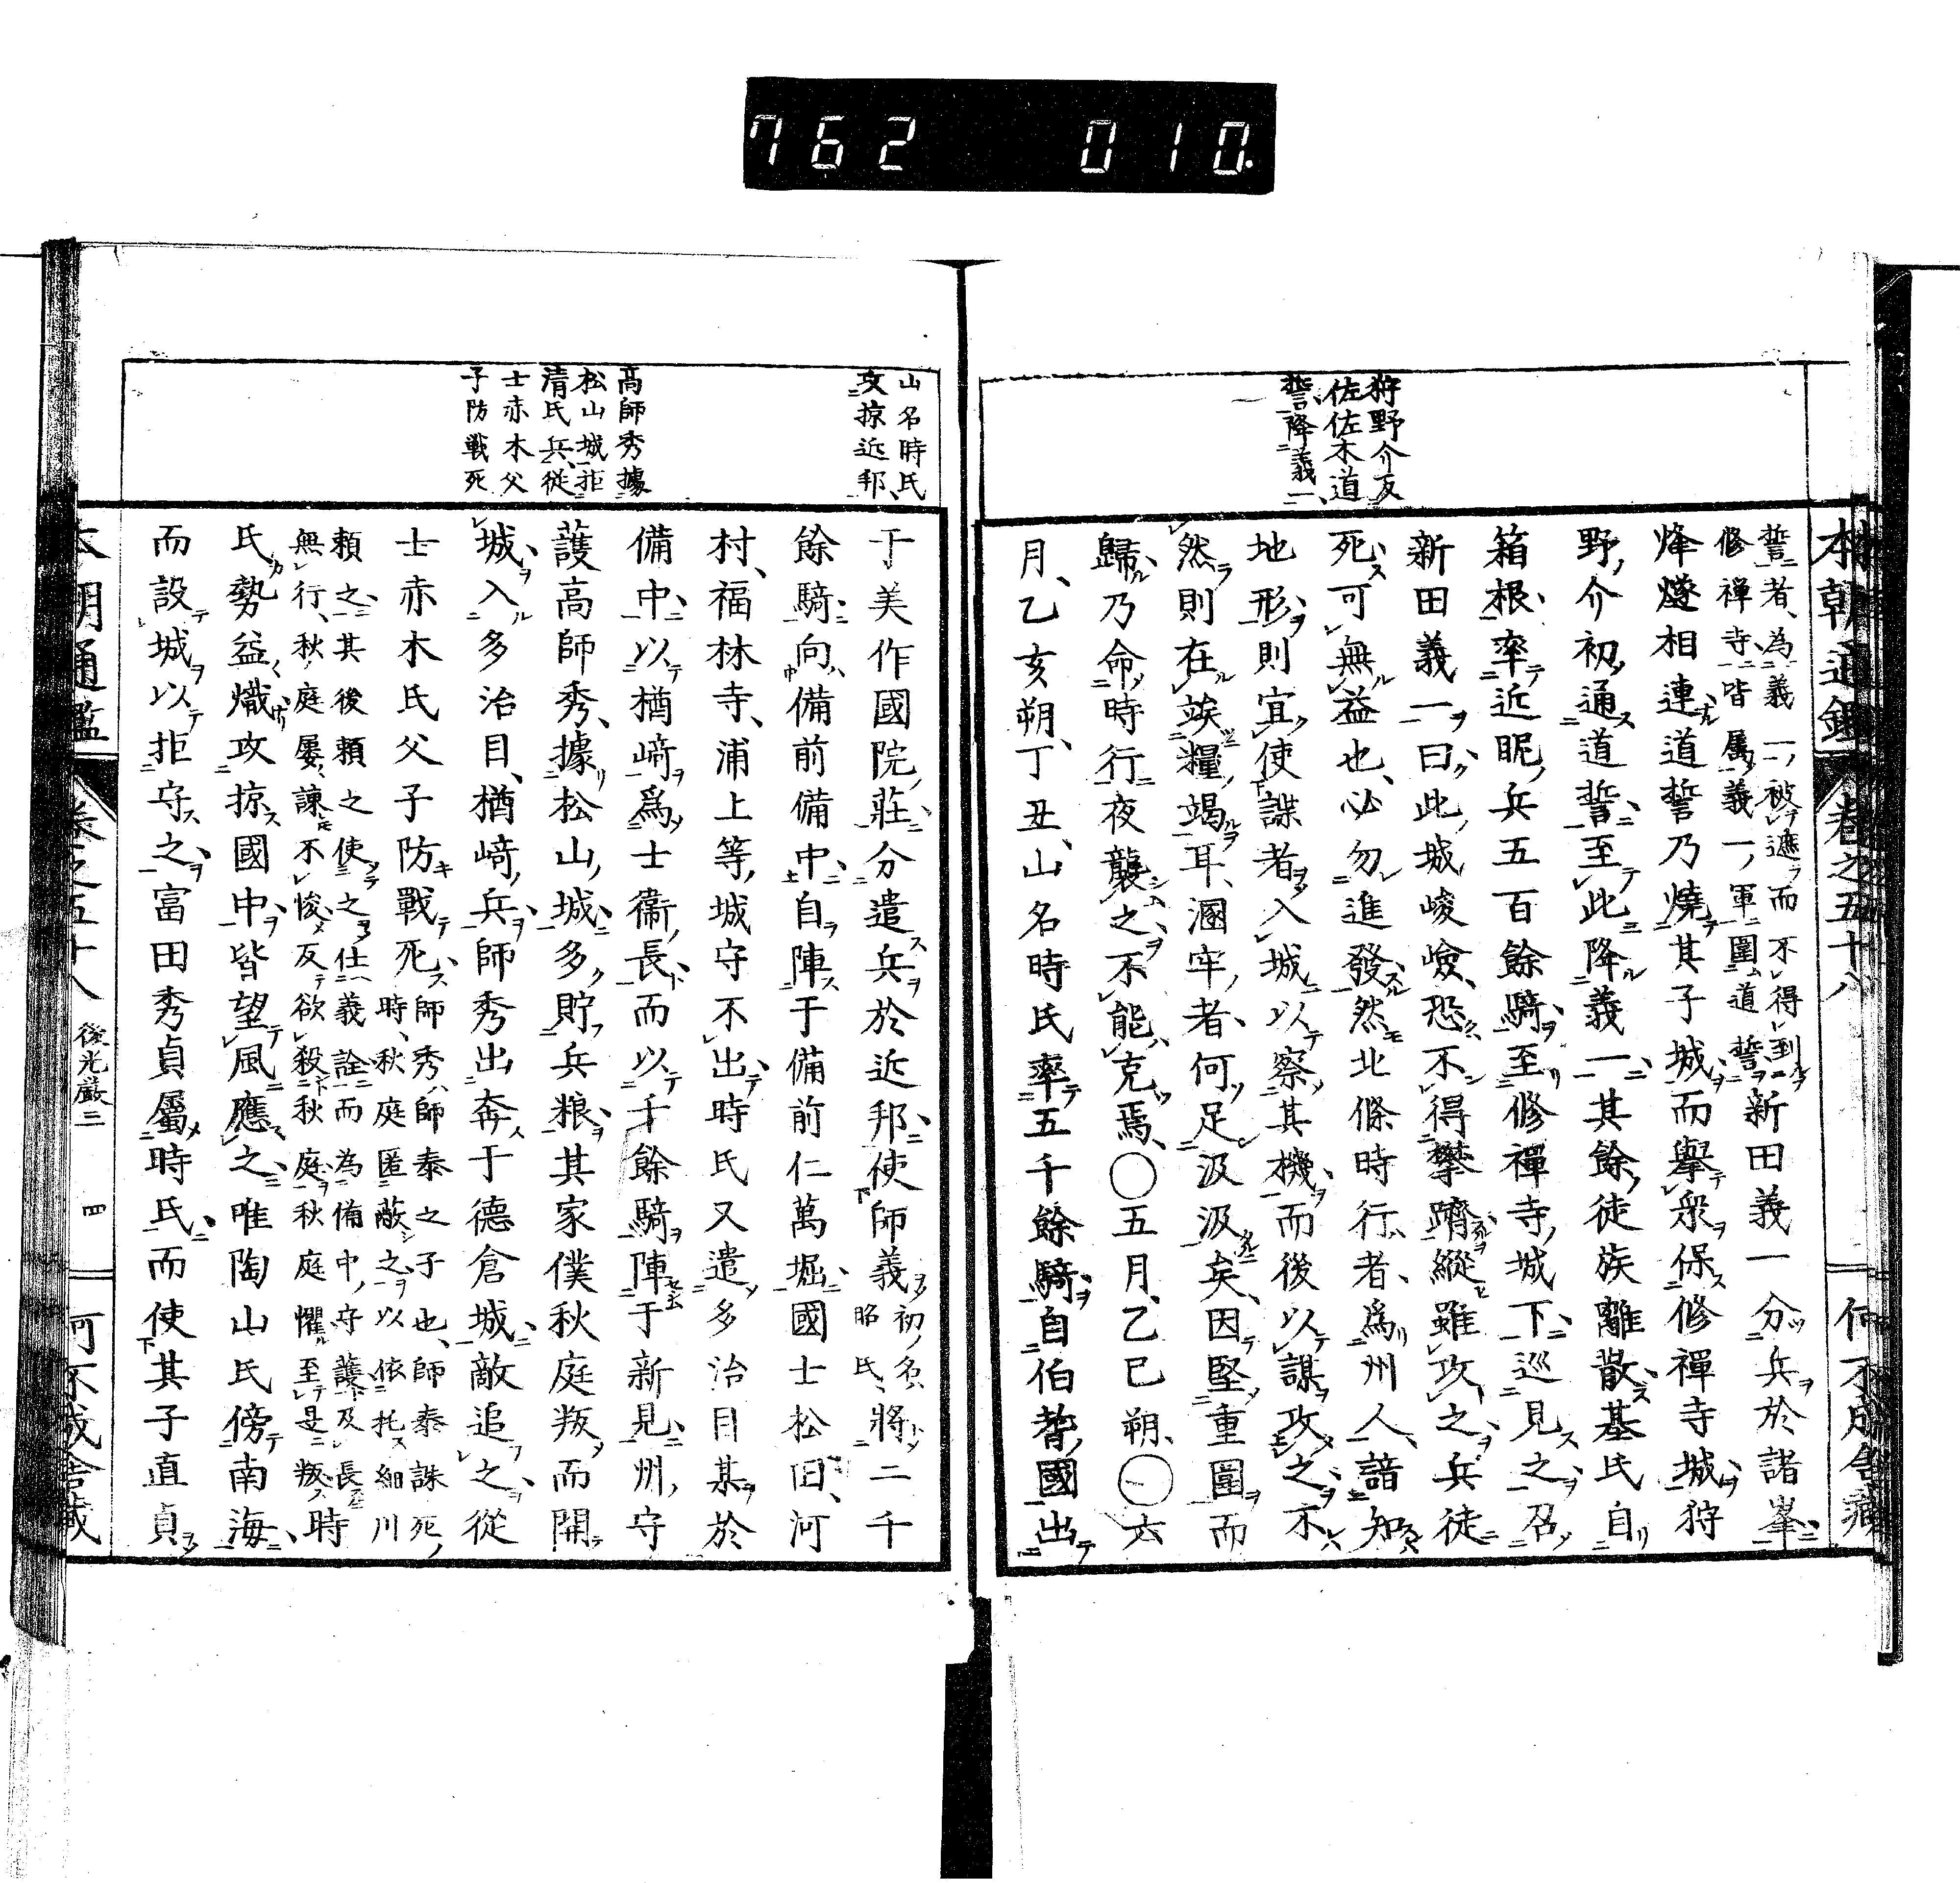 762 010.
本朝通鑑 卷之五十八 何不成舍藏
狩野介反
佐佐木道
誓降義一
誓者、為義一被遮而不得到
修禪寺皆屬義一軍圍道誓
新田義一分兵於諸峯
烽燧相連道誓乃燒其子城而擧衆保修禪寺城狩
野介初通道誓至此降義一其餘徒族離散基氏自
箱根率近昵兵五百餘騎至修禪寺城下巡見之召
新田義一曰此城峻嶮恐不得攀躋縱雖攻之兵徒
死可無益也必勿進發然北條時行者爲州人諳知
地形則宜使諜者入城以察其機而後以謀攻之不
然則在竢糧竭耳溷牢者何足汲汲矣因堅重圍而
歸乃命時行夜襲之不能克焉○五月乙巳朔○六
月乙亥朔丁丑山名時氏率五千餘騎自伯耆國出
山名時氏
攻掠近邦
高師秀據
松山城拒
清氏兵從
士赤木父
子防戰死
于美作國院莊分遣兵於近邦使師義
初名
昭氏
將二千
餘騎向備前備中自陣于備前仁萬堀國士松田河
村福林寺浦上等城守不出時氏又遣多治目某於
備中以楢﨑爲士衞長而以千餘騎陣于新見州守
護高師秀據松山城多貯兵粮其家僕秋庭叛而開
城入多治目楢﨑兵師秀出奔于德倉城敵追之從
士赤木氏父子防戰死
師秀師泰之子也師泰誅死
時秋庭匿蔽之以依托細川
賴之其後賴之使之仕義詮而為備中守護及長
無行秋庭屢諫不悛反欲殺秋庭秋庭懼至是叛
時
氏勢益熾攻掠國中皆望風應之唯陶山氏傍南海
而設城以拒守之富田秀貞屬時氏而使其子直貞
本朝通鑑 卷之五十八 後光嚴二 四 何不成舍藏